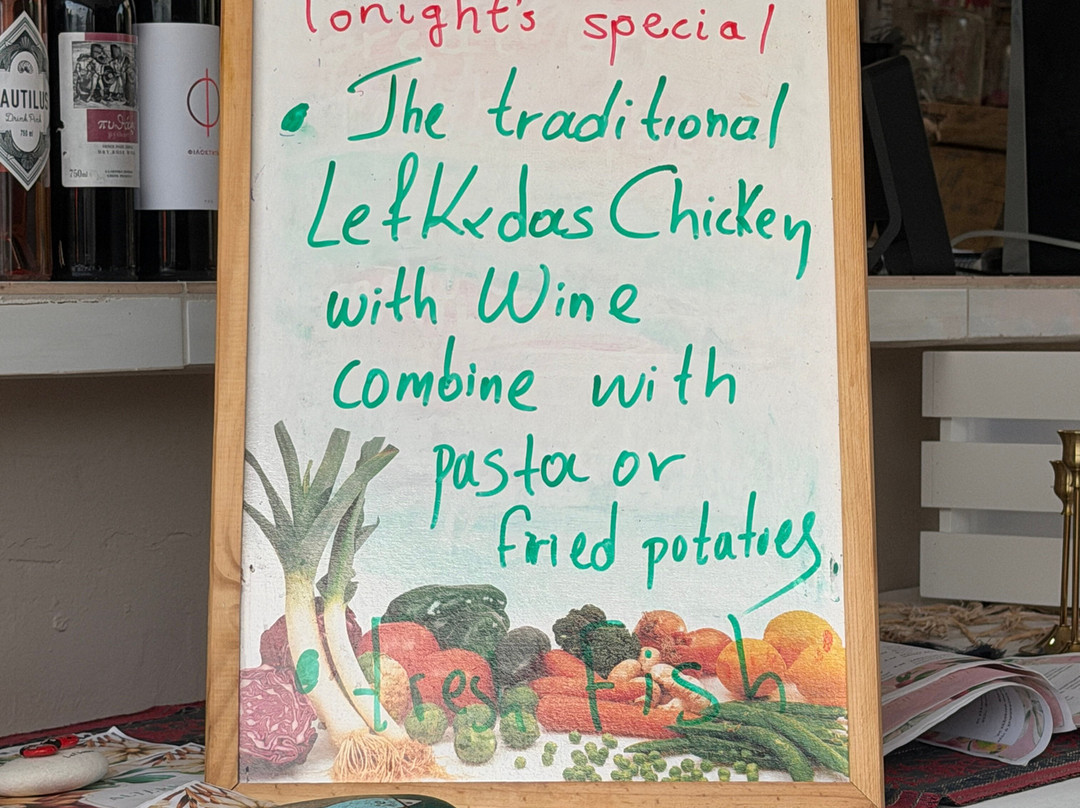 Tonight's special
• The traditional
Lefkadas Chicken
with Wine
combine with
pasta or
fried potatoes
• fresh Fish
AUTILUS
Drink Pink
750 ml
750ml